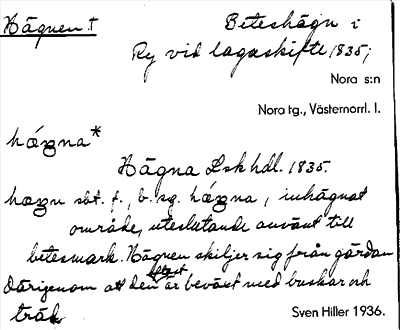 Hägnen †
Beteshägn i
Ry vid lagaskifte 1835;
Nora s:n
Nora tg., Västernorrl. l.
hǽgna*
Hägna Lskhdl. 1835.
hægn sbt. f., b. sg. hǽgna, inhägnat
område, uteslutande använt till
betesmark. Hägnen skiljer sig från gärdan
därigenom att den oftast är beväxt med buskar och
träd
Sven Hiller 1936.